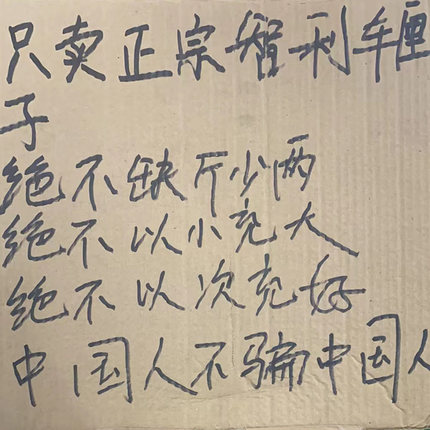 只卖正宗智利车厘
子
绝不缺斤少两
绝不以小充大
绝不以次充好
中国人不骗中国人